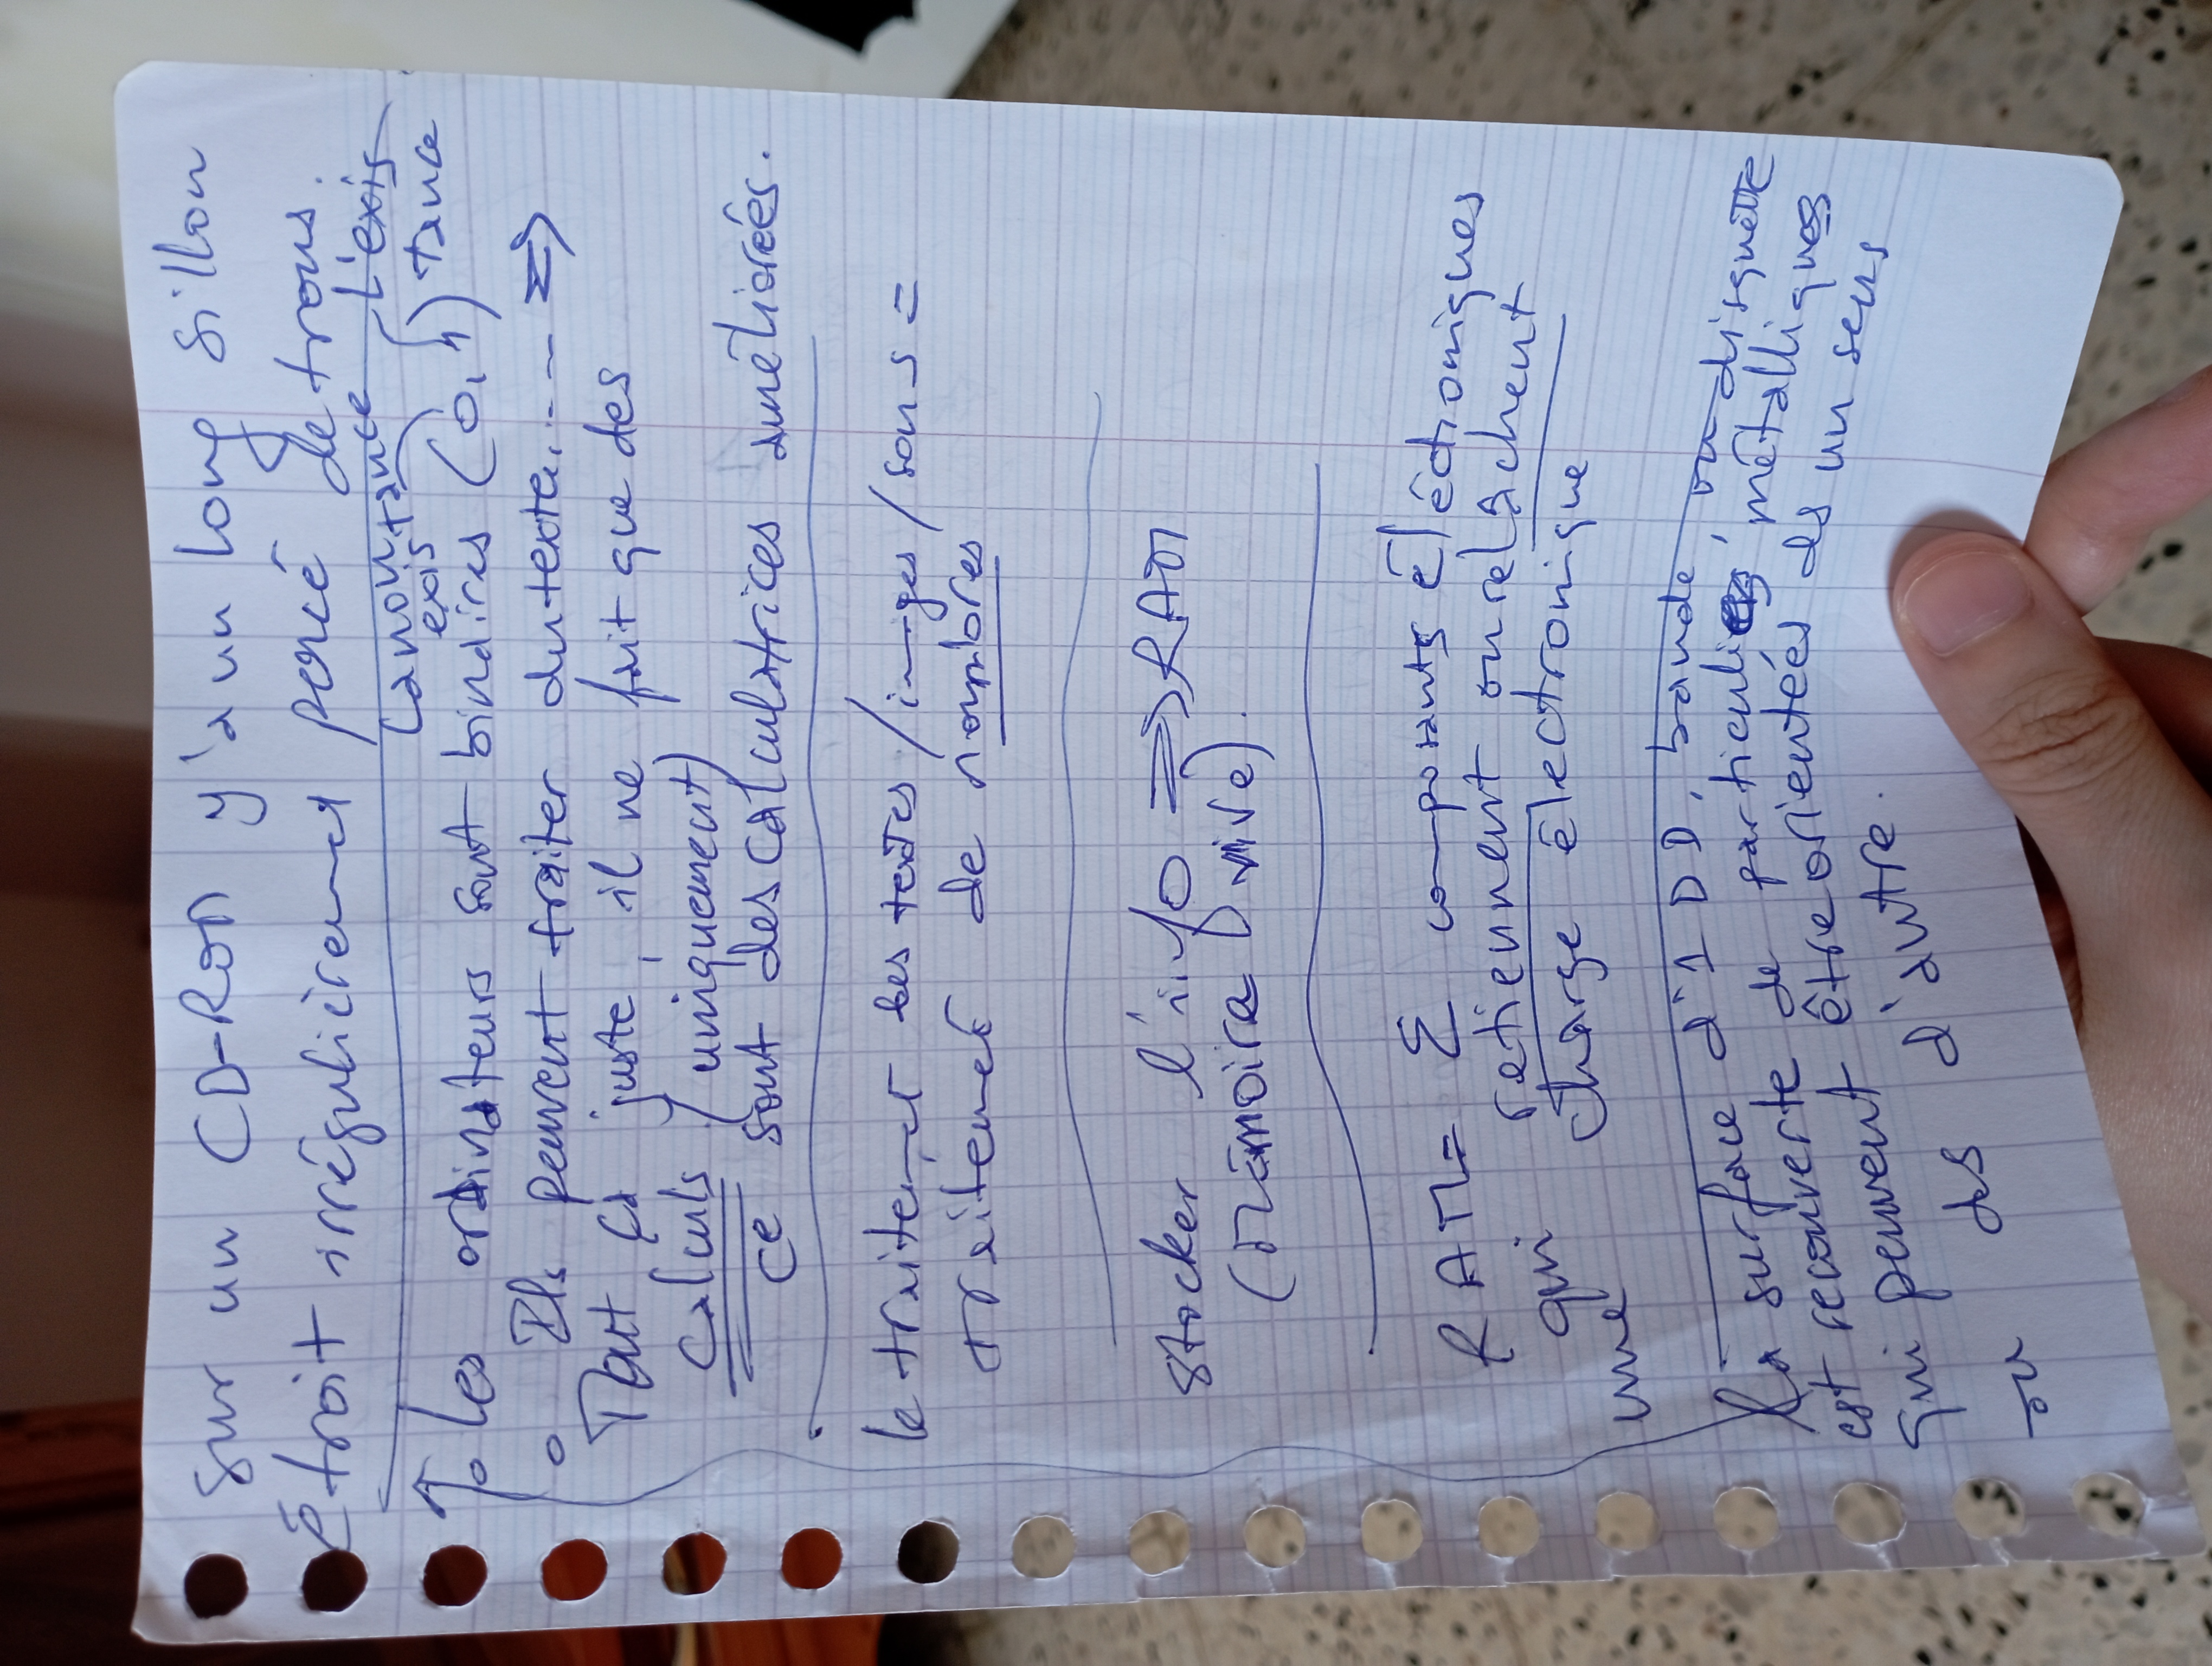 sur un CD-ROM y'a un long sillon
étroit irrégulièrement percé de trous.
l'exis
tance
existance
• Les ordinateurs sont binaires (0,1)
• Ils peuvent traiter du texte...-- ⇒
Tout ça juste, il ne fait que des
calculs (uniquement)
ce sont des calculatrices améliorées.
le traitement des textes / images / sons =
traitement de nombres
stocker l'info ⇒ RAM
(Mémoire vive).
RAM = Σ composants éléctroniques
qui retiennent ou relâchent
une charge électronique
la surface d'1 DD, bande, ou disquette
est recouverte de particules métalliques
qui peuvent être orientées ds un sens
ou ds d'autre.